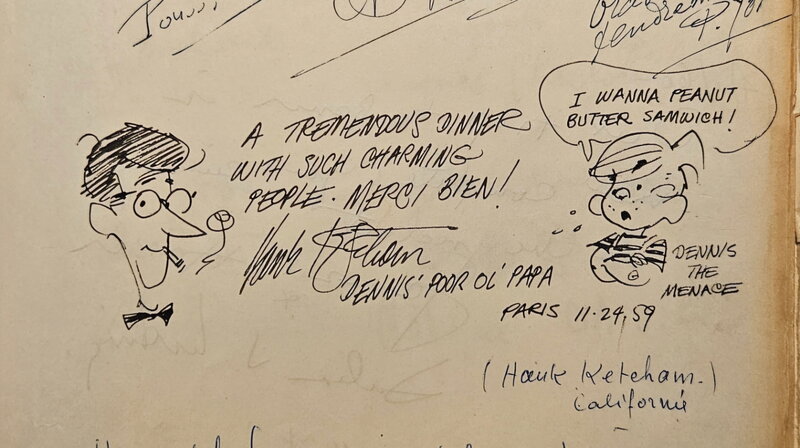 I WANNA PEANUT
BUTTER SAMWICH!
A TREMENDOUS DINNER
WITH SUCH CHARMING
PEOPLE. MERCI BIEN!
Hank Ketcham
DENNIS' POOR OL' PAPA
DENNIS
THE
MENACE
PARIS 11.24.59
(Hank Ketcham.)
Californie